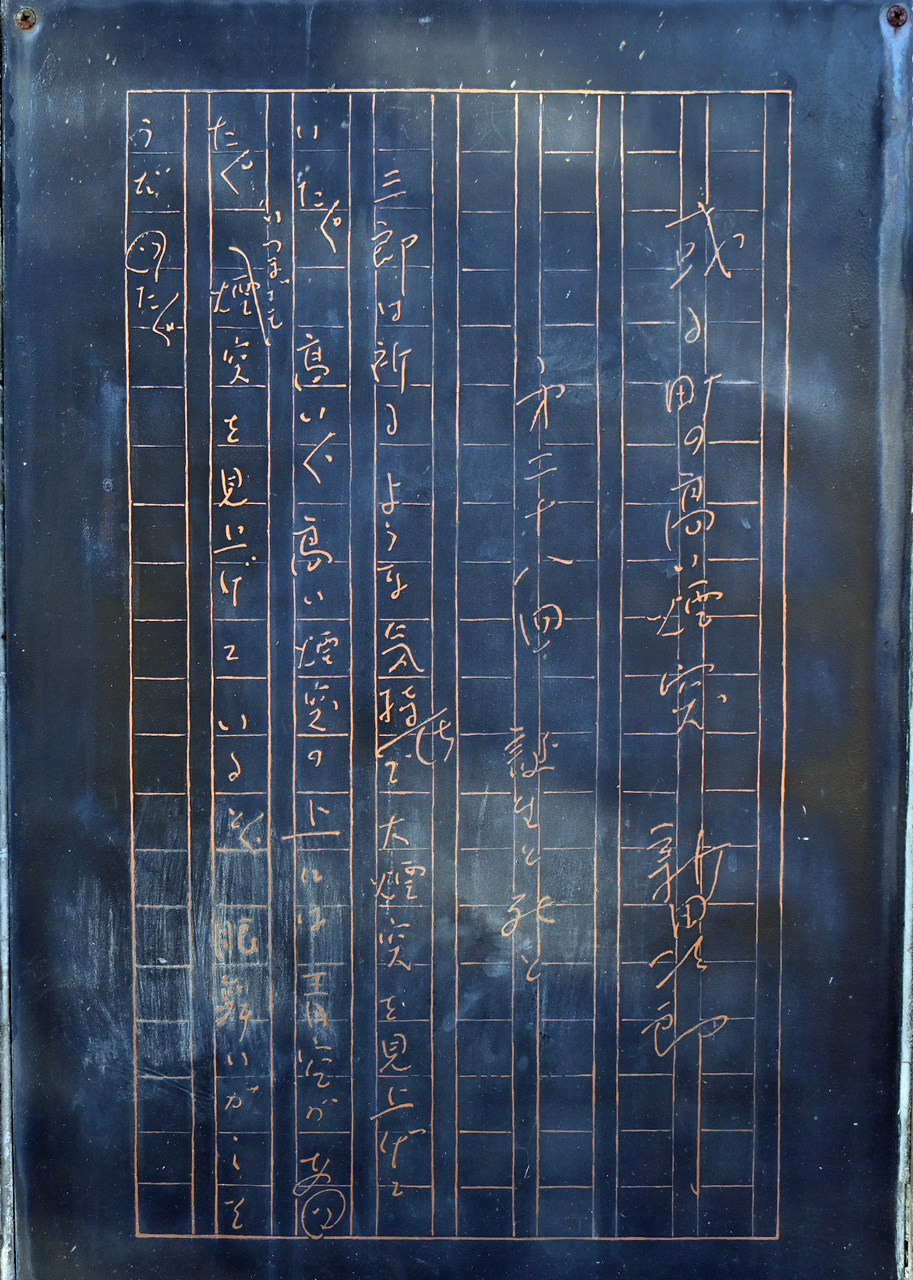 或る町の高い煙突 新田次郎
第二十八回 誕生と死と
三郎は祈るような気持ちで大煙突を見上げて
いた。高い、高い煙突の上には青空があっ
た。いつまでも煙突を見上げていると、眼舞いがしそ
うだった。